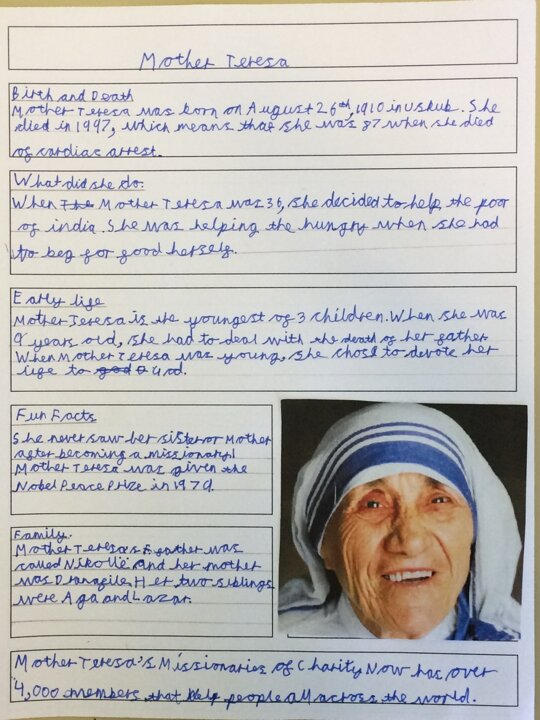 Mother Teresa
Birth and Death
Mother Teresa was born on August 26th, 1910 in Uskub. She
died in 1997, which means that she was 87 when she died
of cardiac arrest.
What did she do:
When The Mother Teresa was 36, she decided to help the poor
of india. She was helping the hungry when she had
to beg for food herself.
Early life
Mother Teresa is the youngest of 3 children. When she was
9 years old, she had to deal with the death of her father
When Mother Teresa was young, she chose to devote her
life to god G God.
Fun Facts
She never saw her sister or Mother
after becoming a missionary!
Mother Teresa was given the
Nobel Peace Prize in 1979.
Family.
Mother Teresa's Father was
called Nikollë and her mother
was Dranafile. Her two siblings
were Aga and Lazar.
Mother Teresa's Missionaries of Charity Now has over
4,000 members that help people all across the world.